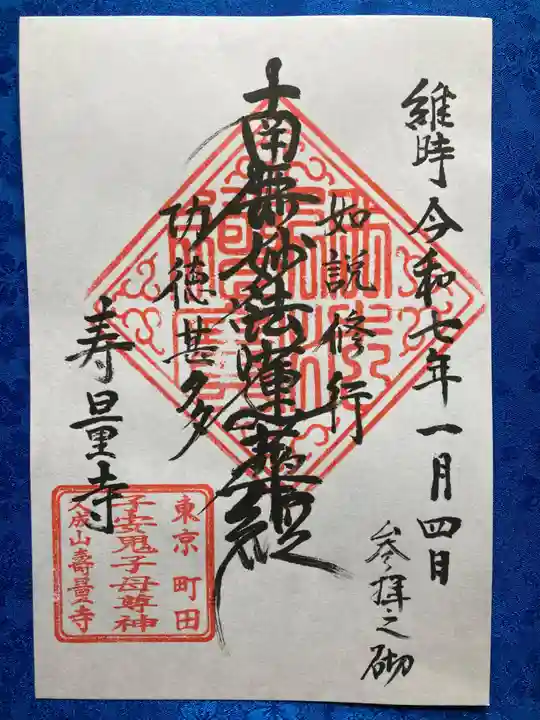 維時令和七年一月四日
参拝之砌
如説修行
南無妙法蓮華経
功徳甚多
寿量寺
東京町田
子安鬼子母尊神
大成山壽量寺